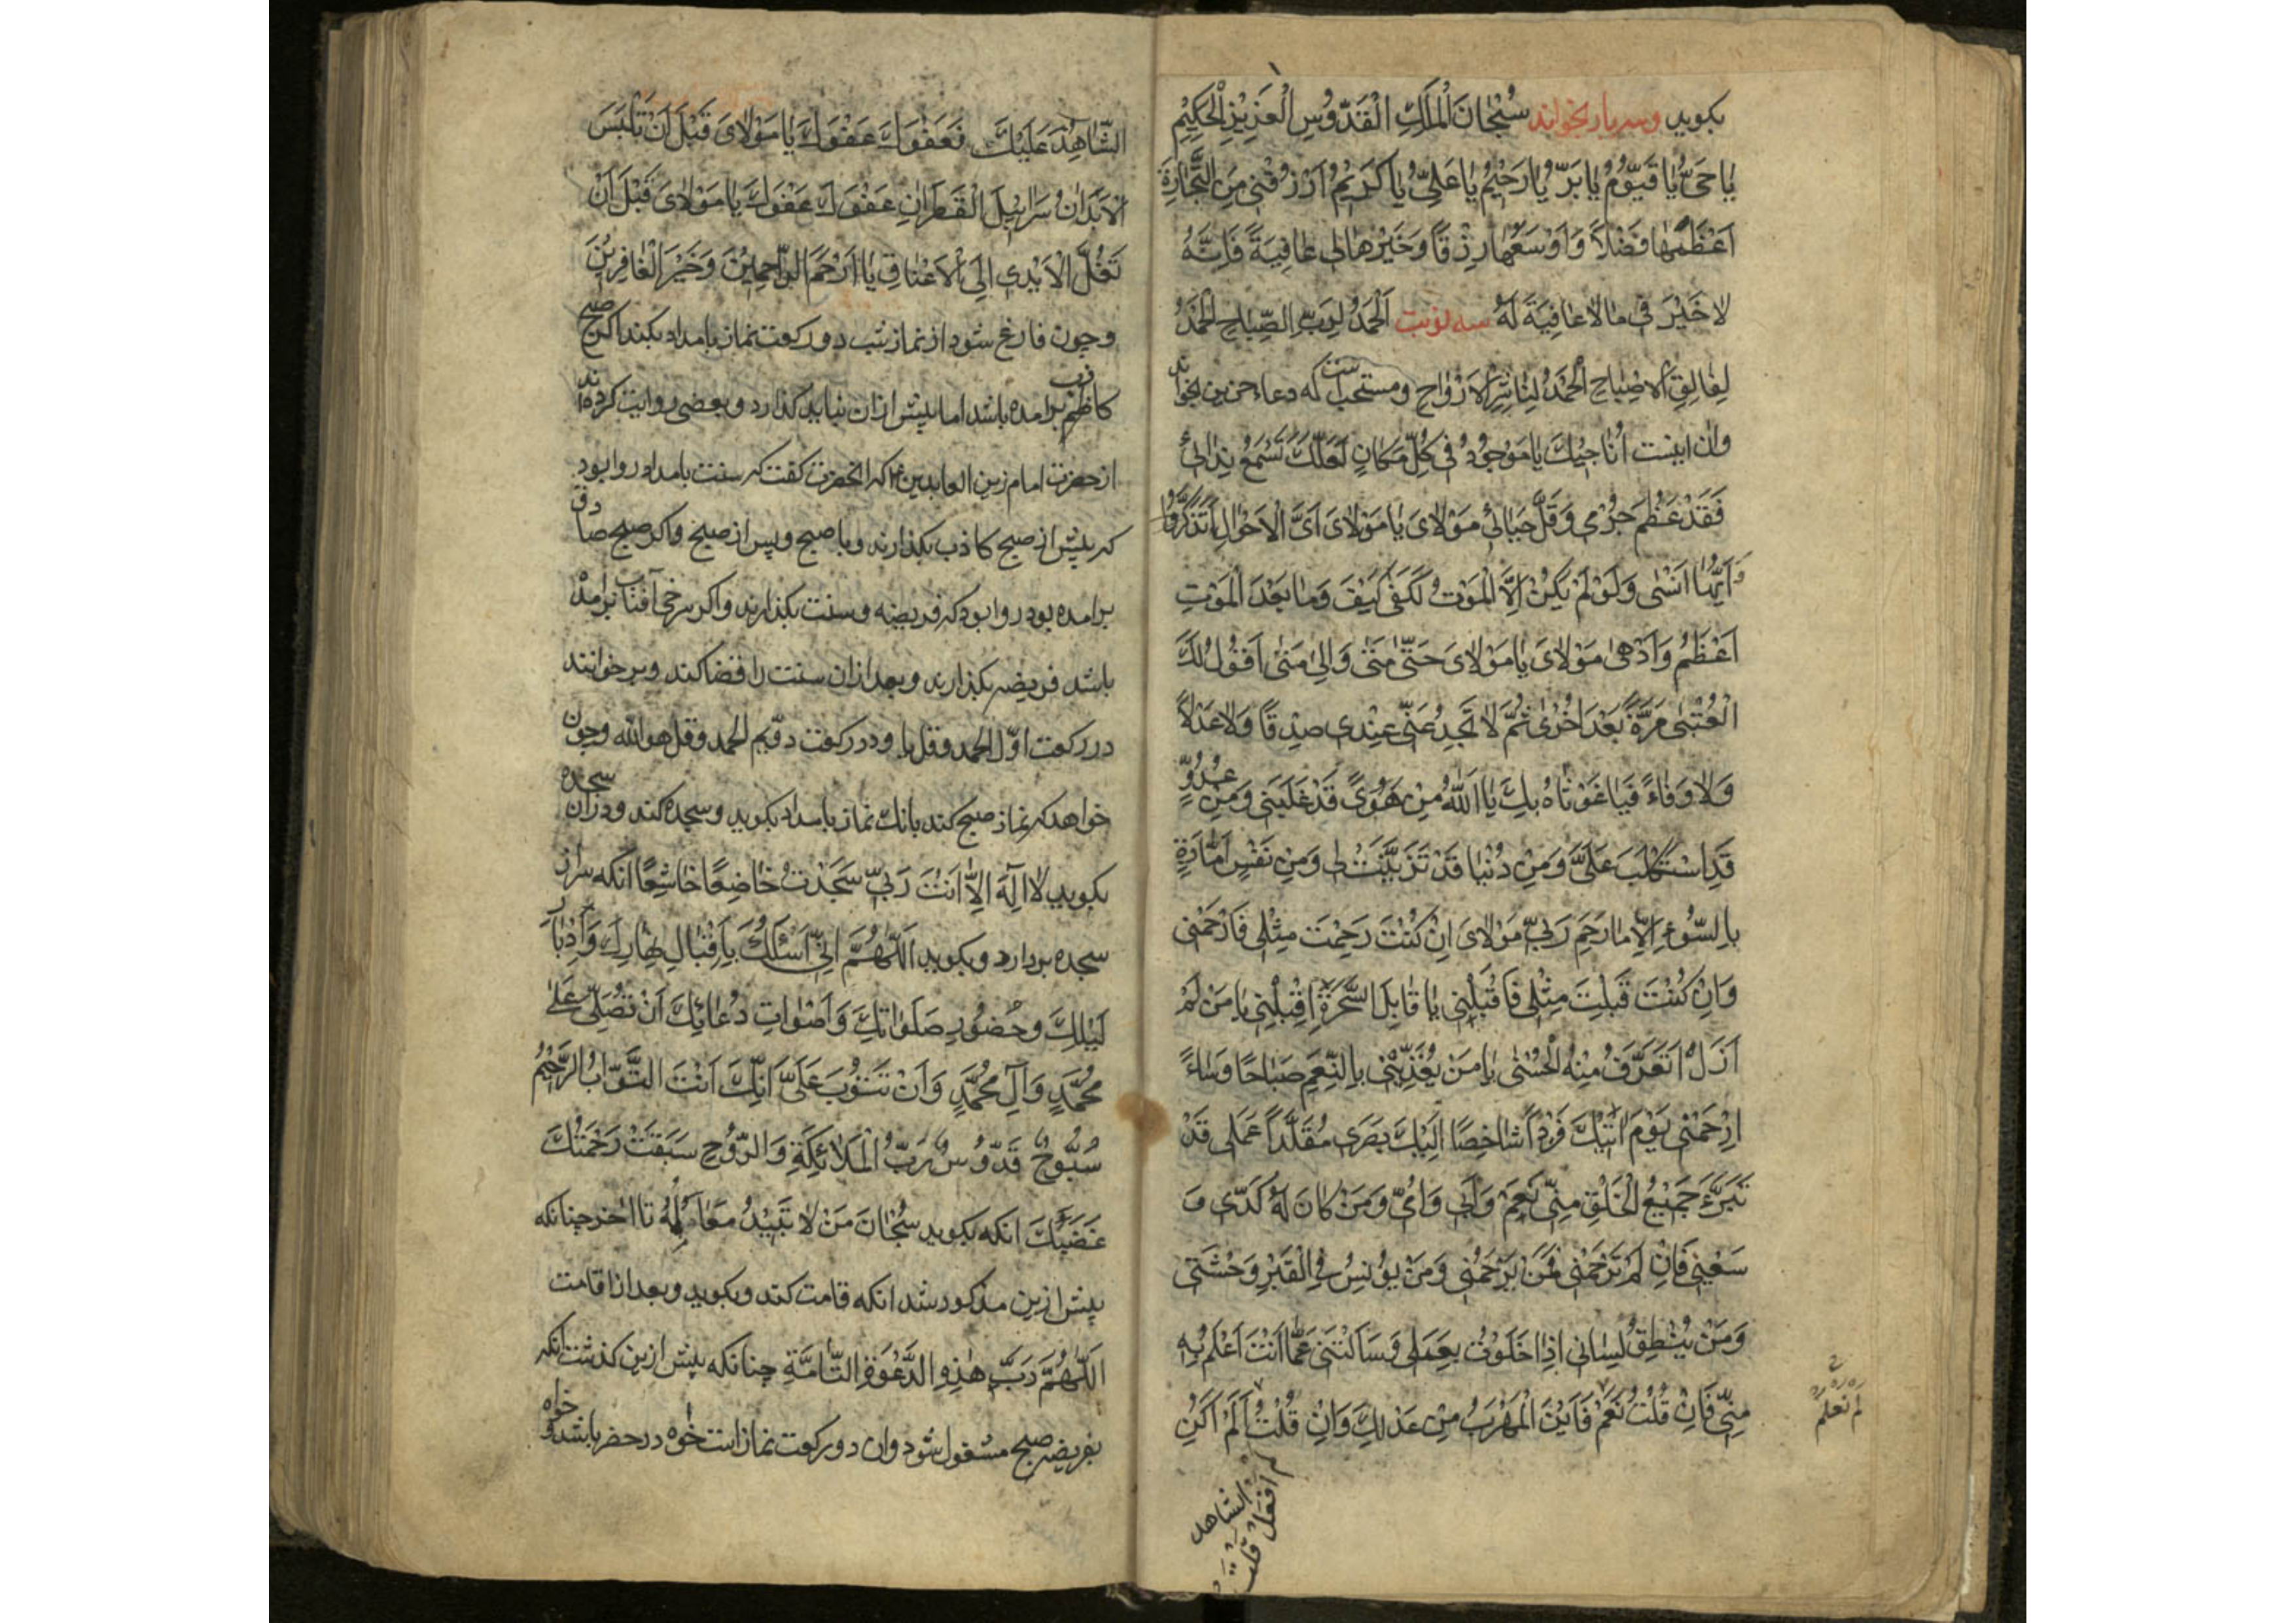 بکوید وسه بار بخواند سُبْحَانَ الْمَلِكِ الْقُدُّوسِ الْعَزِيزِ الْحَكِيمِ
يَا حَىُّ يَا قَيُّومُ يَا بَرُّ يَا رَحِيمُ يَا غَنِىُّ يَا كَرِيمُ اُرْزُقْنِي مِنَ التِّجَارَةِ
اَعْظَمَهَا فَضْلاً وَاَوْسَعَهَا رِزْقًا وَخَيْرَهَا لِى عَافِيَةً فَاِنَّهُ
لَا خَيْرَ فِى مَا لَا عَافِيَةَ لَهُ سه نوبت اَلْحَمْدُ لِرَبِّ الصَّبَاحِ الْحَمْدُ
لِفَالِقِ الْاِصْبَاحِ الْحَمْدُ لِنَاشِرِ الْاَرْوَاحِ ومستحب است که دعاء حزین بخواند
وان اینست اُنَاجِيكَ يَا مَوْجُودُ فِى كُلِّ مَكَانٍ لَعَلَّكَ تَسْمَعُ نِدَائِى
فَقَدْ عَظُمَ جُرْمِى وَقَلَّ حَيَائِى مَوْلَاىَ يَا مَوْلَاىَ اَىَّ الْاَحْوَالِ اَتَذَكَّرُ
وَاَيَّهَا اَنْسٰى وَلَوْ لَمْ يَكُنْ اِلَّا الْمَوْتُ لَكَفٰى كَيْفَ وَمَا بَعْدَ الْمَوْتِ
اَعْظَمُ وَاَدْهٰى مَوْلَاىَ يَا مَوْلَاىَ حَتّٰى مَتٰى وَاِلٰى مَتٰى اَقُولُ لَكَ
الْعُتْبٰى مَرَّةً بَعْدَ اُخْرٰى ثُمَّ لَا تَجِدُ عِنْدِى صِدْقًا وَلَا عَدْلاً
وَلَا وَفَاءً فَيَا غَوْثَاهُ بِكَ يَا اَللهُ مِنْ هَوًى قَدْ غَلَبَنِى وَمِنْ عَدُوٍّ
قَدِ اسْتَكْلَبَ عَلَىَّ وَمِنْ دُنْيَا قَدْ تَزَيَّنَتْ لِى وَمِنْ نَفْسٍ اَمَّارَةٍ
بِالسُّوءِ اِلَّا مَا رَحِمَ رَبِّى مَوْلَاىَ اِنْ كُنْتَ رَحِمْتَ مِثْلِى فَارْحَمْنِى
وَاِنْ كُنْتَ قَبِلْتَ مِثْلِى فَاقْبَلْنِى يَا قَابِلَ السَّحَرَةِ اِقْبَلْنِى يَا مَنْ لَمْ
اَزَلْ اَتَعَرَّفُ مِنْهُ الْحُسْنٰى يَا مَنْ يُغَذِّينِى بِالنِّعَمِ صَبَاحًا وَمَسَاءً
اِرْحَمْنِى يَوْمَ آتِيكَ فَرْدًا شَاخِصًا اِلَيْكَ بَصَرِى مُقَلَّدًا عَمَلِى قَدْ
تَبَرَّءَ جَمِيعُ الْخَلْقِ مِنِّى نَعَمْ وَاَبِى وَاُمِّى وَمَنْ كَانَ لَهُ كَدِّى وَ
سَعْيِى فَاِنْ لَمْ تَرْحَمْنِى فَمَنْ يَرْحَمُنِى وَمَنْ يُونِسُ فِى الْقَبْرِ وَحْشَتِى
وَمَنْ يُنْطِقُ لِسَانِى اِذَا خَلَوْتُ بِعَمَلِى وَسَاَلْتَنِى عَمَّا اَنْتَ اَعْلَمُ بِهِ
مِنِّى فَاِنْ قُلْتُ نَعَمْ فَاَيْنَ الْمَهْرَبُ مِنْ عَدْلِكَ وَاِنْ قُلْتُ اَلَمْ اَكُنِ
لم افعل قلت
الشاهد
الشَّاهِدَ عَلَيْكَ فَعَفْوَكَ عَفْوَكَ يَا مَوْلَاىَ قَبْلَ اَنْ تَلْبَسَ
الْاَبْدَانُ سَرَابِيلَ الْقَطِرَانِ عَفْوَكَ عَفْوَكَ يَا مَوْلَاىَ قَبْلَ اَنْ
تَغُلَّ الْاَيْدِى اِلَى الْاَعْنَاقِ يَا اَرْحَمَ الرَّاحِمِينَ وَخَيْرَ الْغَافِرِينَ
وچون فارغ شود از نماز شب دو رکعت نماز بامداد بکند اکر صبح
کاذب برامده باشد اما پیش ازان نباید کذارد و بعضی روایت کرده‌اند
از حضرت امام زین العابدین که انحضرت کفت که سنت بامداد روا بود
که پیش از صبح کاذب بکذارند و با صبح و پس از صبح واکر صبح صادق
برامده بود روا بود که فریضه و سنت بکذارند واکر سرخی آفتاب برامده
باشد فریضه بکذارند و بعد ازان سنت را قضا کند و برخوانند
در رکعت اوّل الحمد وقل یا و در رکعت دویم الحمد وقل هو الله وچون
خواهد که نماز صبح کند بانك نماز بامداد بکوید و سجده کند ودران سجده
بکوید لَا اِلٰهَ اِلَّا اَنْتَ رَبِّى سَجَدْتُ خَاضِعًا خَاشِعًا انکه سر از
سجده بردارد و بکوید اَللّٰهُمَّ اِنِّى اَسْئَلُكَ بِاِقْبَالِ نَهَارِكَ وَاِدْبَارِ
لَيْلِكَ وَحُضُورِ صَلَوَاتِكَ وَاَصْوَاتِ دُعَائِكَ اَنْ تُصَلِّىَ عَلٰى
مُحَمَّدٍ وَآلِ مُحَمَّدٍ وَاَنْ تَتُوبَ عَلَىَّ اِنَّكَ اَنْتَ التَّوَّابُ الرَّحِيمُ
سُبُّوحٌ قُدُّوسٌ رَبُّ الْمَلَائِكَةِ وَالرُّوحِ سَبَقَتْ رَحْمَتُكَ
غَضَبَكَ انکه بکوید سُبْحَانَ مَنْ لَا تَبِيدُ مَعَالِمُهُ تا اخر چنانکه
پیش ازین مذکور شد انکه قامت کند و بکوید و بعد از اقامت
اَللّٰهُمَّ رَبَّ هٰذِهِ الدَّعْوَةِ التَّامَّةِ چنانکه پیش ازین کذشت انکه
بفریضه صبح مشغول شود وان دو رکعت نماز است خواه در حضر باشد و خواه